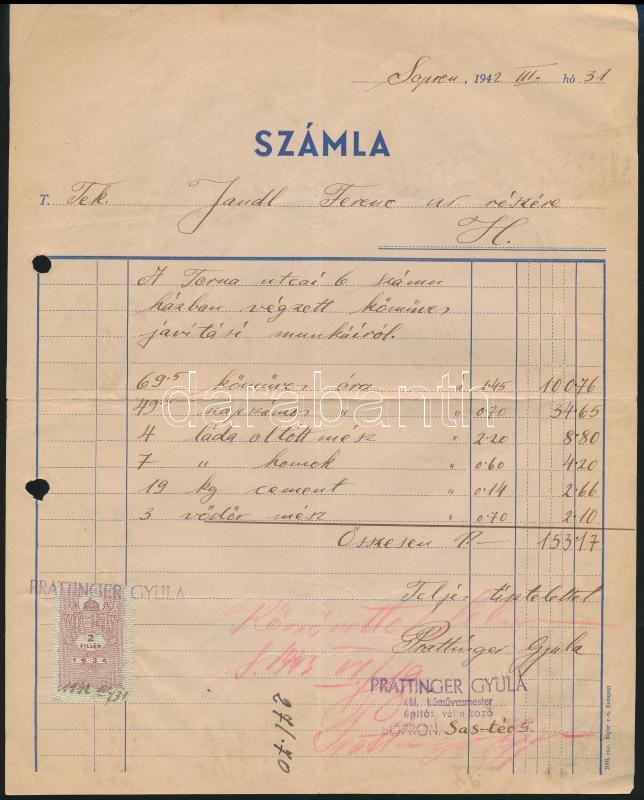 Sopron, 1942 III. hó 31
SZÁMLA
T. Tek. Jandl Ferenc úr részére
H.
A Torna utcai 6 számu
házban végzett kőmüves
javitási munkáiról.
69.5 kőmüves óra " 1.45 100.76
49.5 napszámos " " 0.70 34.65
4 láda oltott mész " 2.20 8.80
7 " homok " 0.60 4.20
19 kg cement " 0.14 2.66
3 vödör mész " 0.70 2.10
Összesen P.— 153.17
darabanth
PRATTINGER GYULA
Teljes tisztelettel
2
FILLÉR
1934
Köszönettel
S. 1943
Prattinger Gyula
PRATTINGER GYULA
okl. kőművesmester
építési vállalkozó
SOPRON, Sas-tér 5.